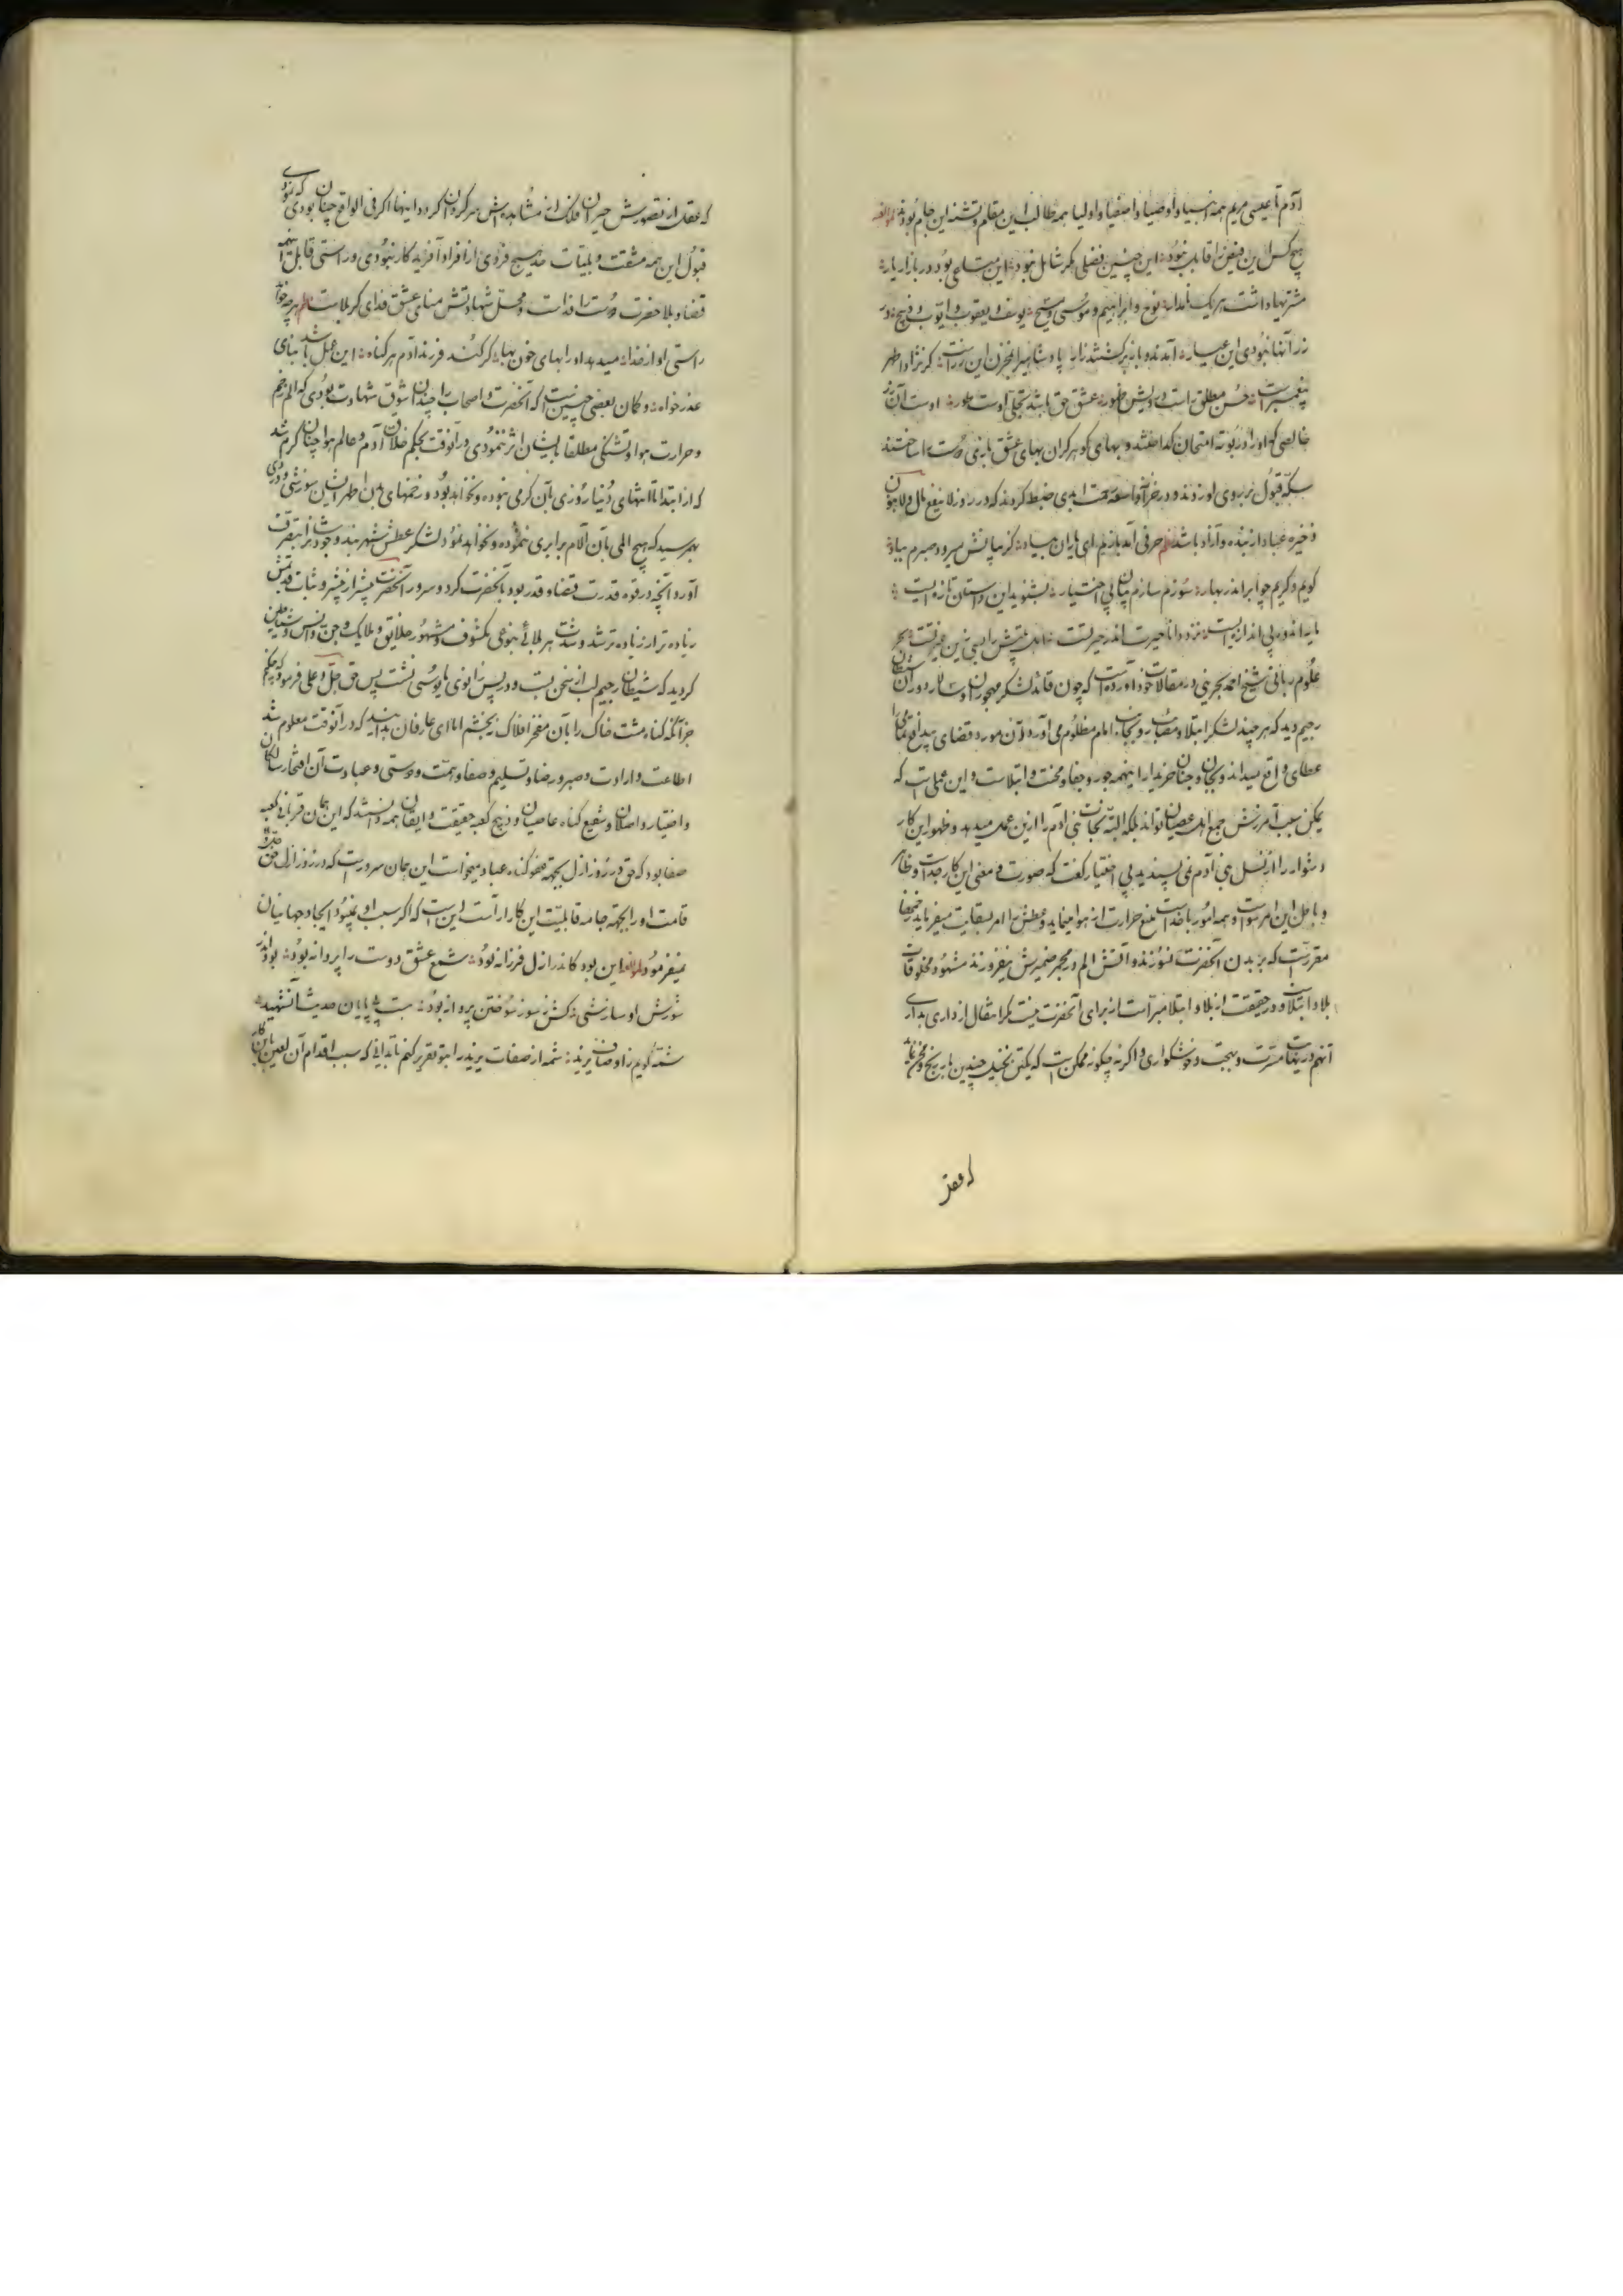 آدم تا عیسی مریم همه انبیا و اوصیا و اصفیا و اولیا همه طالب این مقام و تشنه این جام بودند لمؤلفه
هیچ کس این فیض را قابل نبود این چنین فضلی بکس شامل نبود این متاعی بود در بازار یار
مشتریها داشت هر یک نامدار نوح و ابراهیم و موسی و مسیح یوسف و یعقوب و ایوب و ذبیح در
زر آنها نبودی این عیار آمدند و باز برگشتند زار پادشاهیرا مخزن این زر است
پیغمبر است حسن مطلق راست در پیش ظهور عشق حق باشد تجلی اوست طور اوست آن زر
خالصی که او را در بوته امتحان گداختند و بهای گوهر گران بهای عشق بازی دوست ساختند
سکه قبول بر روی او زدند و در خزانه رحمت ابدی ضبط کردند که در روز لا ینفع مال و لا بنون
ذخیره عباد از بنده و آزاد باشد نظم حرفی آمد بازم ای یاران بیاد کز بیانش میرود صبرم بباد
گویم و گریم چو ابر اندر بهار سوزم و سازم بی اختیار بشنوید این داستان تازه ایست
مایه اندوه بی اندازه ایست نزد دانا حیرت اندر حیرتست اهل بینش را بسی زین غیرتست بحر
علوم ربانی شیخ احمد بحرینی در مقالات خود آورده است که چون قائد لشکر مهجوران و سالار دوران شیطان
رجیم دید که هر چند لشکر ابتلا و مصائب روی بجانب امام مظلوم می آورد و آن مورد قضای
عطای واقع میداند و بجان و جنان خریدار اینهمه جور و جفا و محنت و ابتلاست و این عملی است که
یمکن سبب آمرزش جمیع اهل عصیان تواند بلکه البته نجات بنی آدم را ازین عمل میدهد و ظهور این کار
دشوار را از نسل بنی آدم نمی پسندید بی اختیار گفت که صورت و معنی این کار جداست و ظاهر
و باطن این امر سواست و همه امور با خداست منع حرارت از هوا مینماید و عطش را امر بسقایت میفرماید
مقرر است که بر بدن آنحضرت نسوزند و آتش الم در مجمر ضمیرش نیفروزند مشهود مخلوقات
بلا و ابتلاست و در حقیقت از بلا و ابتلا مبراست از برای آنحضرت نیست مگر امثال از داری بدار
آنهم در نهایت مسرت و بهجت و خوشگواری و اگر نه چگونه ممکن است که یکتن تحمل چندین بار رنج و محن نماید
که عقل
که عقل از تصورش حیران و فلک از مشاهده اش سرگردان گردد اینها اگر فی الواقع چنان که نمودی بودی
قبول این همه مشقت و بلیات حد هیچ فردی از افراد آفریده کار نبودی و راستی قابل اینهمه
قضا و بلا حضرت دوست را فداست و محل شهادتش منای عشق فدای کربلاست نظم هر چه خواهد
راستی او از خدا میدهد او را بهای خون بها گر کند فرزند آدم هر گناه این عمل باشد بنای
عذرخواه و گمان بعضی چنین است که آنحضرت و اصحاب را چندان شوق شهادت بودی که الم زخم
و حرارت هوا و تشنگی مطلقا بایشان اثر ننمودی در آنوقت بحکم خلاق آدم و عالم هوا چنان گرم شد
که از ابتدا تا انتهای دنیا روزی بآن گرمی نبوده و نخواهد بود و زخمهای بدن اطهر ایشان سوزشی و دردی
بهم رسید که هیچ المی بآن آلام برابری ننموده و نخواهد نمود لشکر عطش شهربند وجودش را بتصرف
آورد و آنچه در قوه قدرت قضا و قدر بود با آنحضرت کرد و سرور آنحضرت بیشتر از پیشتر و ثبات قدمش
زیاده تر از زیاده تر شد و شدت هر بلائی بنوعی مکشوف و مشهور خلایق و ملایک و جن و انس و شیاطین
گردید که شیطان رجیم لب از سخن بست و در پس زانوی مأیوسی نشست پس حق جل و علی فرمود که چه میکنم
جز آنکه گناه مشت خاک را بآن مفخر افلاک ببخشم اما ای عارفان بدانید که در آنوقت معلوم شد
اطاعت و ارادت و صبر و رضا و تسلیم و صفا و همت و دوستی و عبادت آن افتخار سالکان
و اختیار واصلان و شفیع گناه عاصیان و ذبیح کعبه حقیقت و ایقان همه دانستند که این همان قربانی کعبه
صفا بود که حق در روز ازل بجهة عفو گناه عباد میخواست این همان سرور است که در روز ازل حق
قامت او را بجهة جامه قابلیت این کار آراست این است که اگر سبب او نمیبود ایجاد جهانیان
نمیفرمود لمؤلفه این بود کاندر ازل فرزانه بود شمع عشق دوست را پروانه بود بود اندر
سوزش او سازشی کش ز سوز سوختن پروا نبود هست بی پایان حدیث آنشهید
شمه گویم ز اوصاف یزید شمه از صفات یزید را بتو تقریر کنم تا بدانی که سبب اقدام آن لعین باین کار